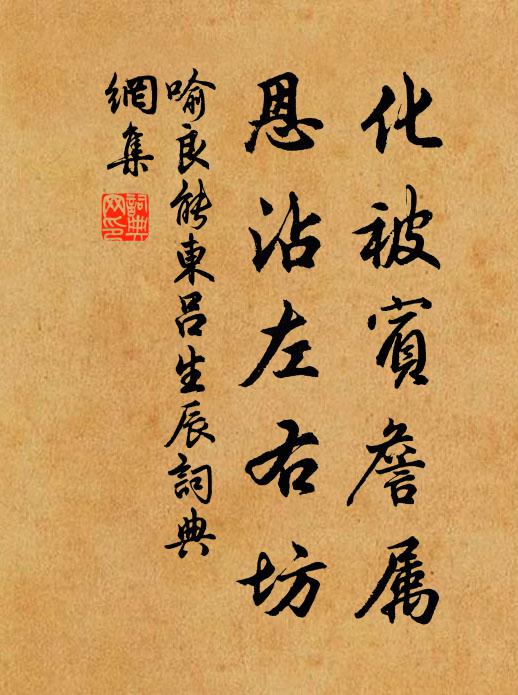 化被賓詹属
恩沾左右坊
喻良能東呂生辰詞典
網集
詞典網印